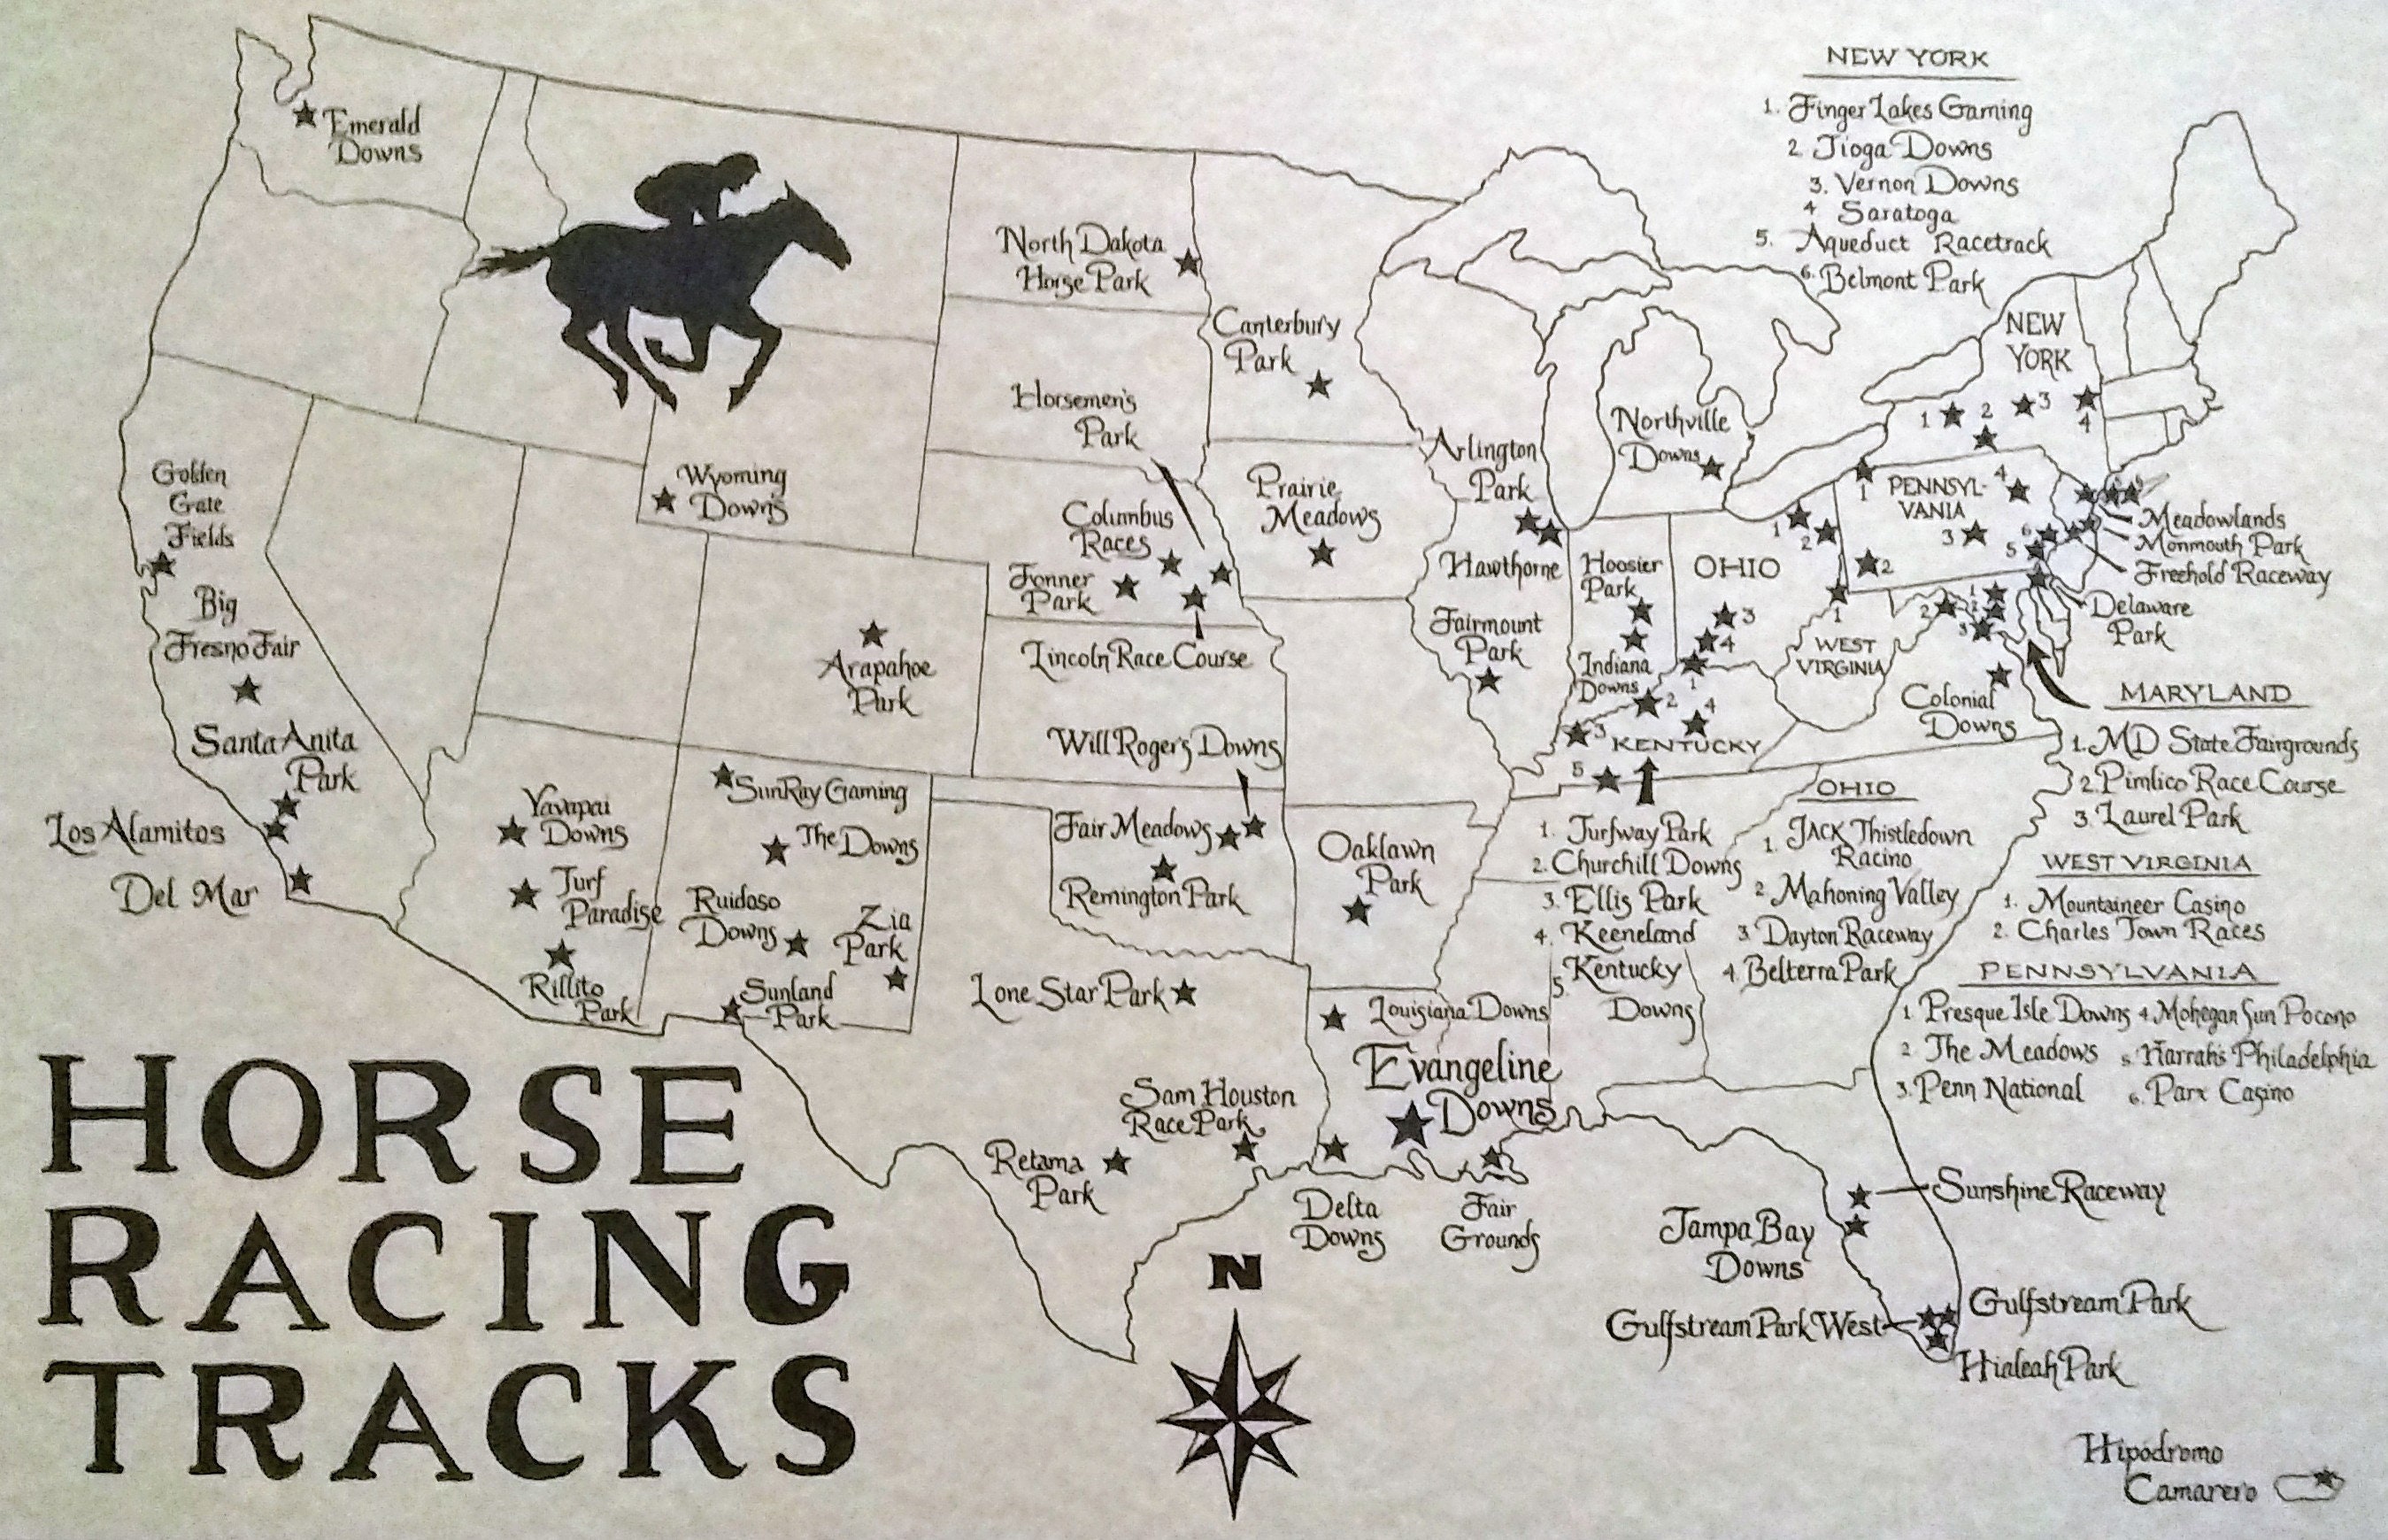 NEW YORK
1. Finger Lakes Gaming
2 Tioga Downs
3. Vernon Downs
4 Saratoga
5. Aqueduct Racetrack
6. Belmont Park
Emerald
Downs
North Dakota
Horse Park
Canterbury
Park
NEW
YORK
1
2
3
4
Horsemen's
Park
Northville
Downs
Arlington
Park
Golden
Gate
Fields
Wyoming
Downs
Prairie
Meadows
Columbus
Races
Fonner
Park
Hawthorne
Hoosier
Park
OHIO
1
2
3
4
PENNSYL-
VANIA
1
2
3
4
5
6
Meadowlands
Monmouth Park
Freehold Raceway
Delaware
Park
Big
Fresno Fair
Arapahoe
Park
Lincoln Race Course
Fairmount
Park
Indiana
Downs
WEST
VIRGINIA
1
2
1
2
3
Colonial
Downs
MARYLAND
1. MD State Fairgrounds
2. Pimlico Race Course
3. Laurel Park
Santa Anita
Park
Los Alamitos
Del Mar
Will Rogers Downs
1
2
3
4
5
KENTUCKY
Yavapai
Downs
Turf
Paradise
Rillito
Park
SunRay Gaming
The Downs
Ruidoso
Downs
Zia
Park
Sunland
Park
Fair Meadows
Remington Park
Oaklawn
Park
1. Turfway Park
2. Churchill Downs
3. Ellis Park
4. Keeneland
5. Kentucky
Downs
OHIO
1. JACK Thistledown
Racino
2. Mahoning Valley
3. Dayton Raceway
4. Belterra Park
WEST VIRGINIA
1. Mountaineer Casino
2. Charles Town Races
PENNSYLVANIA
1 Presque Isle Downs 4. Mohegan Sun Pocono
2 The Meadows 5. Harrah's Philadelphia
3. Penn National 6. Parx Casino
Lone Star Park
Louisiana Downs
Evangeline
Downs
Sam Houston
Race Park
Retama
Park
Delta
Downs
Fair
Grounds
Sunshine Raceway
Tampa Bay
Downs
Gulfstream Park
Gulfstream Park West
Hialeah Park
HORSE
RACING
TRACKS
N
Hipodromo
Camarero